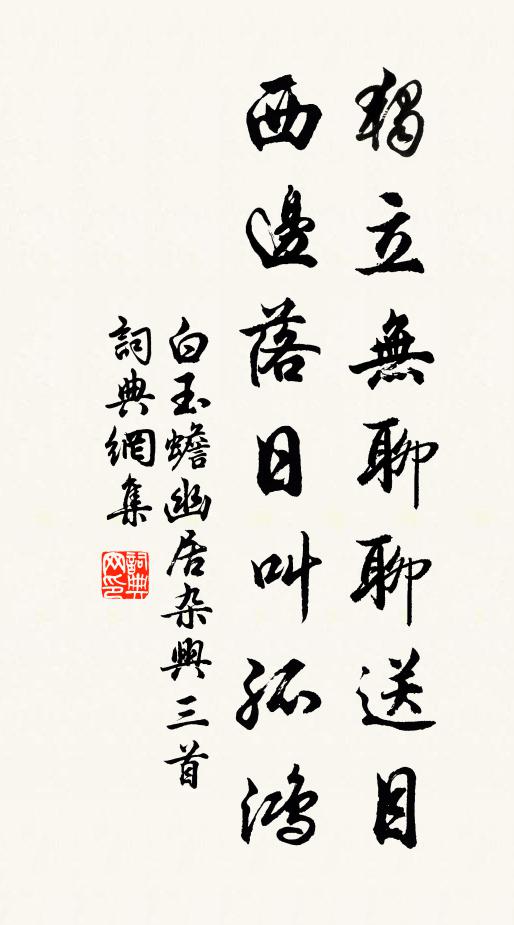 獨立無聊聊送目
西邊落日叫孤鴻
白玉蟾幽居杂興三首
詞典網集
詞典网印